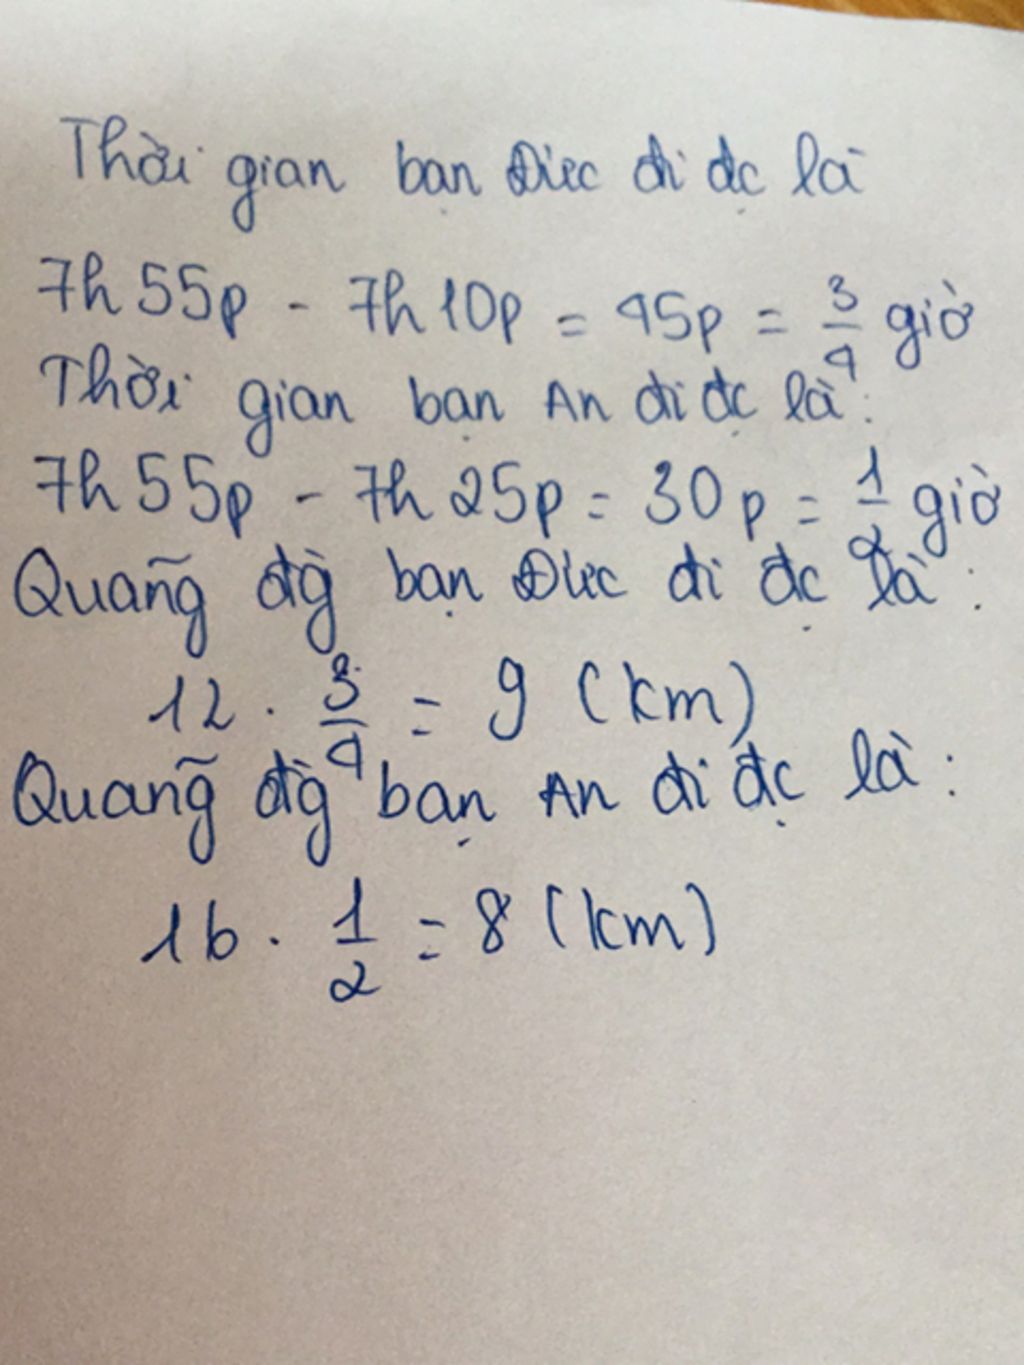 Thời gian bạn Đức đi đc là
7h55p - 7h10p = 45p = 3/4 giờ
Thời gian bạn An đi đc là:
7h55p - 7h25p = 30p = 1/2 giờ
Quãng đg̀ bạn Đức đi đc là:
12 . 3/4 = 9 (km)
Quãng đg̀ bạn An đi đc là:
16 . 1/2 = 8 (km)